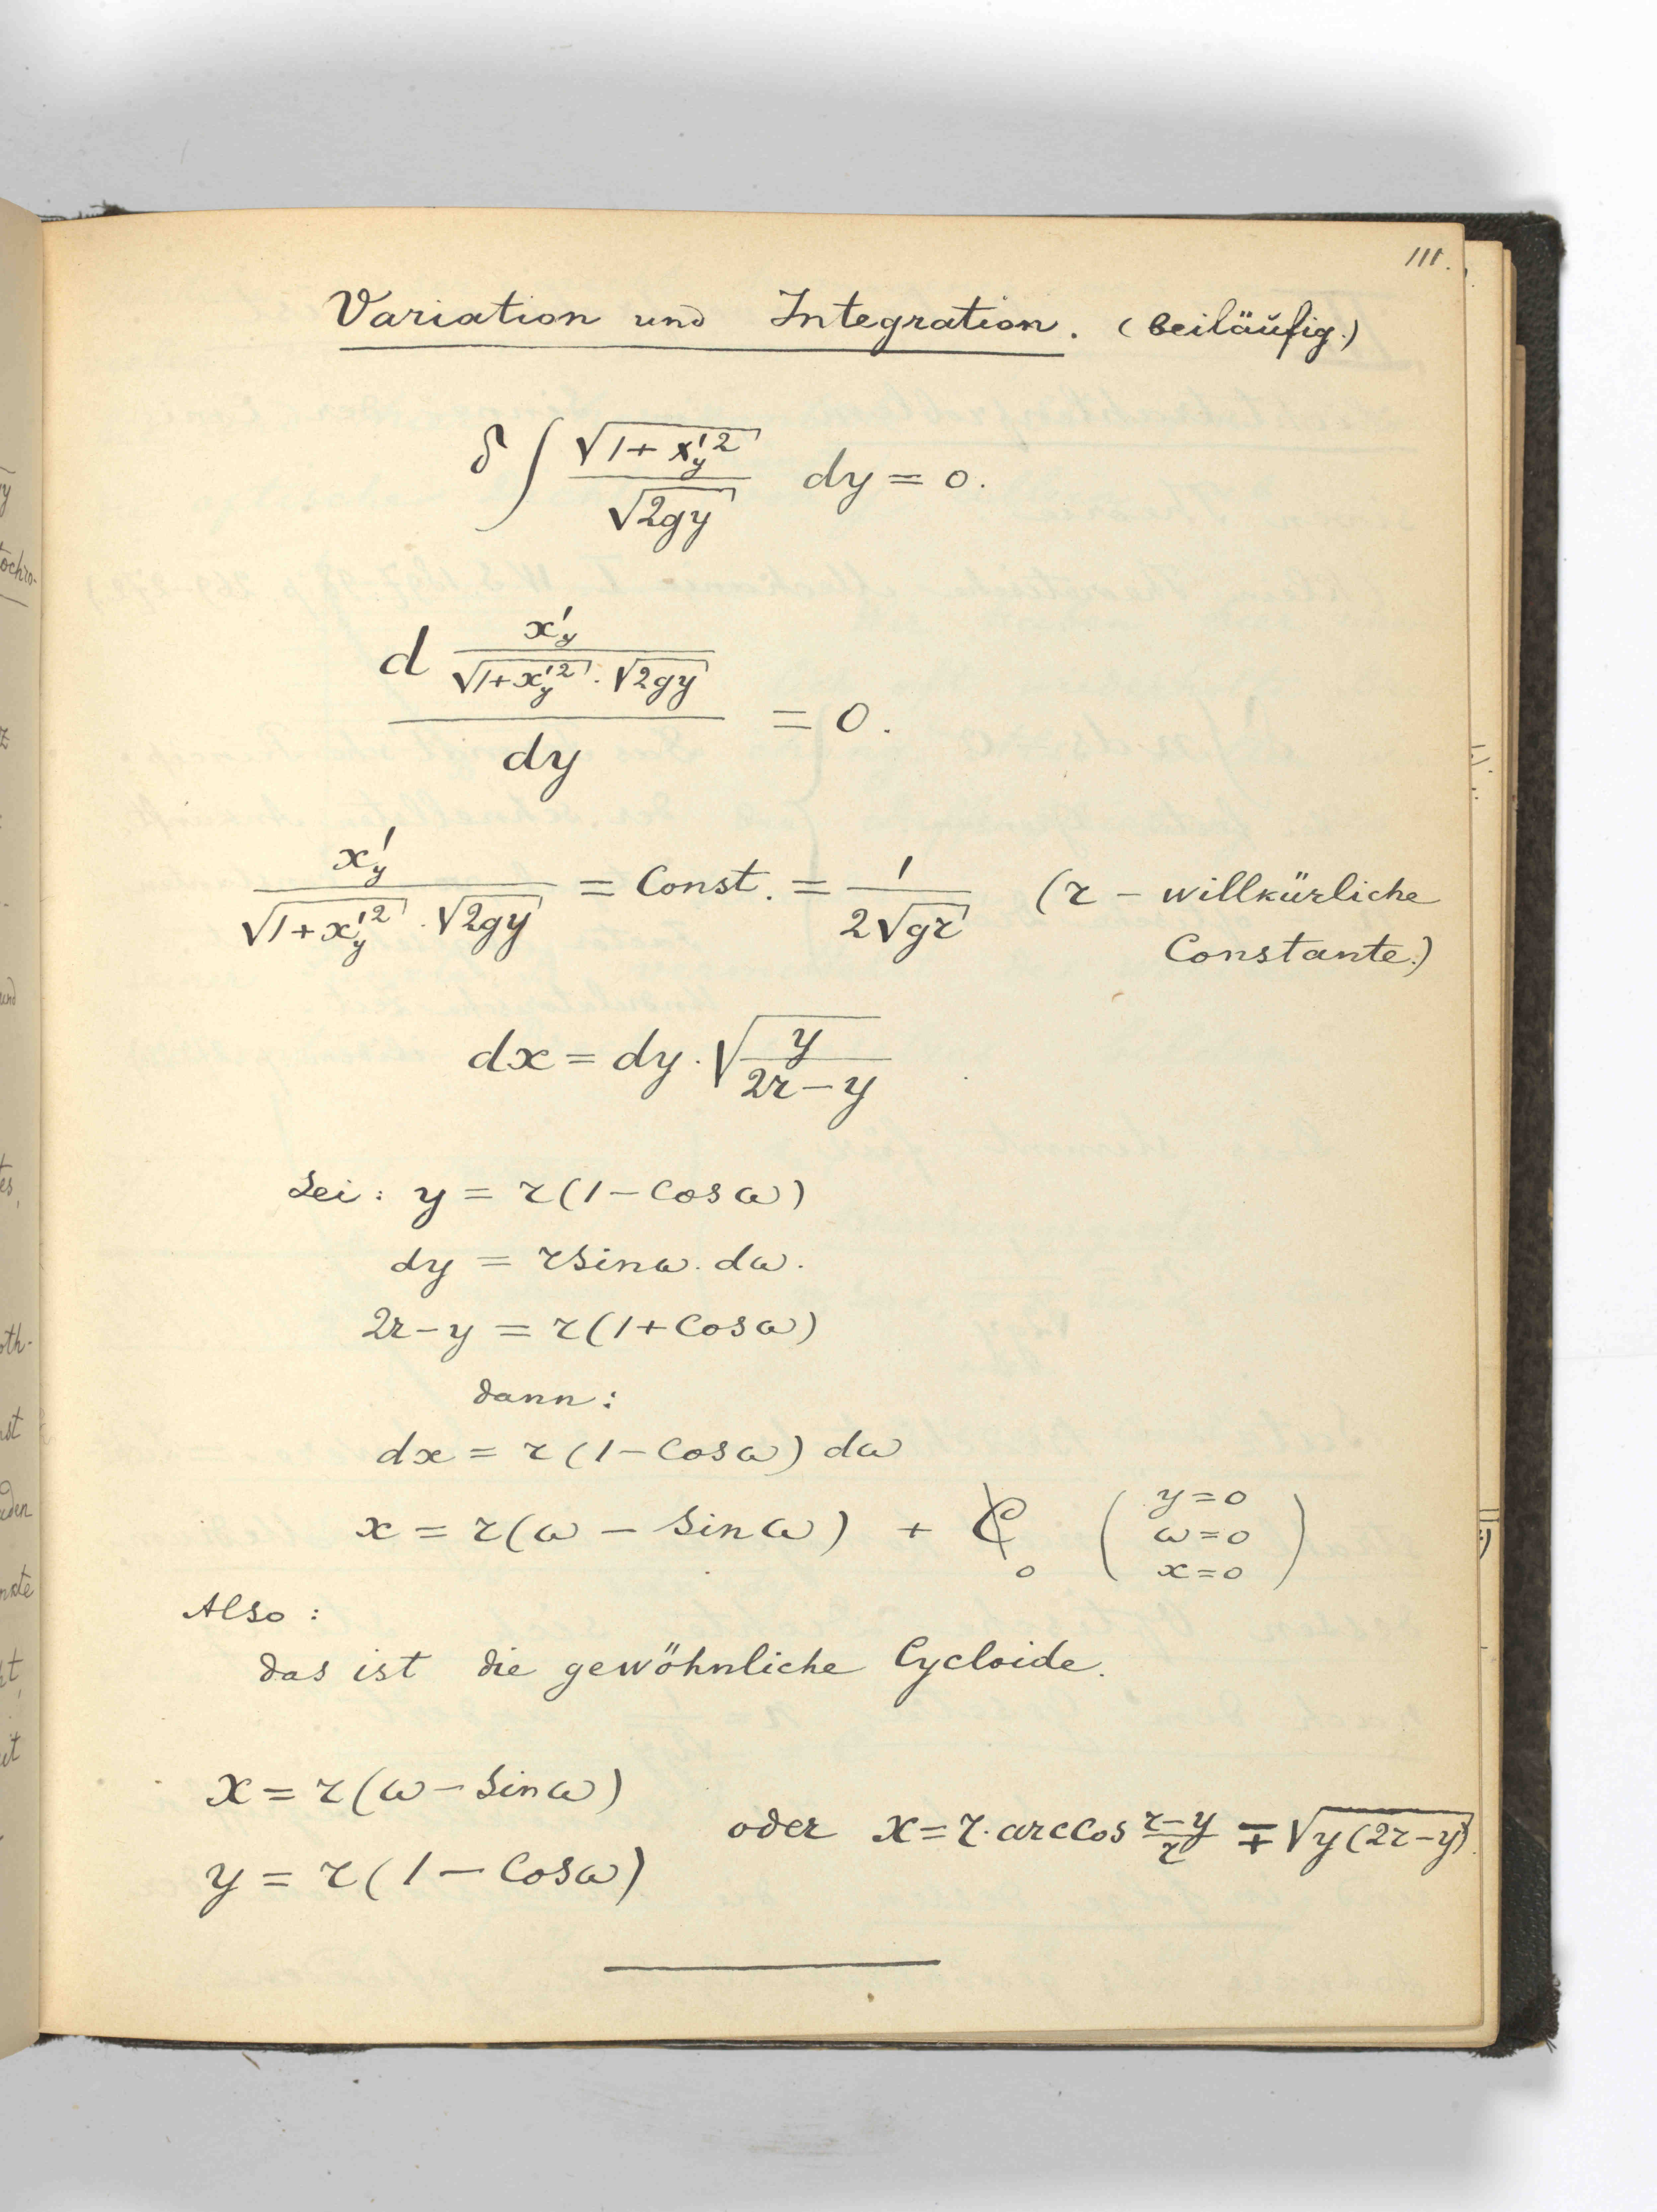 111.
Variation und Integration. (beiläufig.)
δ ∫ √(1+x'_y²) / √(2gy) dy = 0.
d (x'_y / (√(1+x'_y²) · √(2gy))) / dy = 0.
x'_y / (√(1+x'_y²) · √(2gy)) = Const. = 1 / (2√(gr)) (r – willkürliche
Constante.)
dx = dy · √(y / (2r–y))
Sei: y = r(1–Cosω)
dy = rSinω. dω.
2r–y = r(1+Cosω)
dann:
dx = r(1–Cosω) dω
x = r(ω – Sinω) + C₀ (y=0 ω=0 x=0)
Also:
das ist die gewöhnliche Cycloide.
x = r(ω – Sinω)
y = r(1 – Cosω)
oder x = r·arcCos (r–y)/r ∓ √(y(2r–y)).